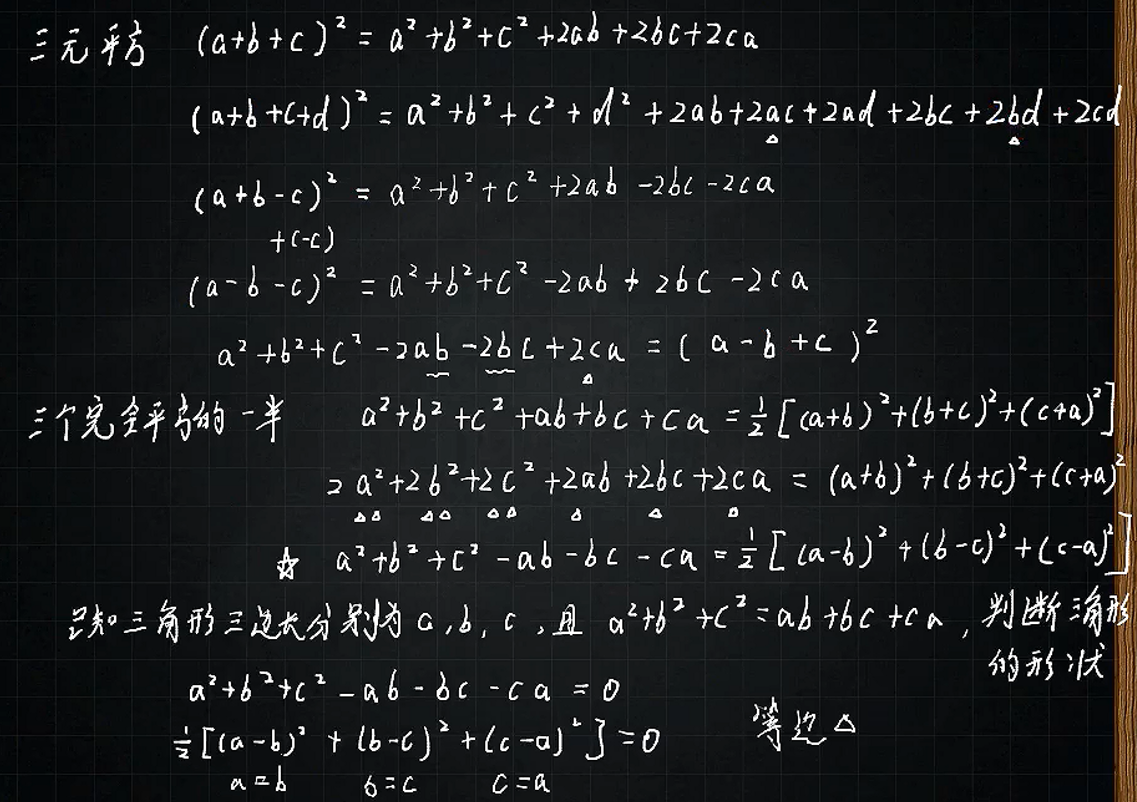 三元平方 (a+b+c)² = a²+b²+c²+2ab+2bc+2ca
(a+b+c+d)² = a²+b²+c²+d²+2ab+2ac+2ad+2bc+2bd+2cd
(a+b-c)² = a²+b²+c²+2ab-2bc-2ca
+(-c)
(a-b-c)² = a²+b²+c²-2ab+2bc-2ca
a²+b²+c²-2ab-2bc+2ca = (a-b+c)²
三个完全平方的一半 a²+b²+c²+ab+bc+ca = ½[(a+b)²+(b+c)²+(c+a)²]
2a²+2b²+2c²+2ab+2bc+2ca = (a+b)²+(b+c)²+(c+a)²
☆ a²+b²+c²-ab-bc-ca = ½[(a-b)²+(b-c)²+(c-a)²]
已知三角形三边长分别为a,b,c,且 a²+b²+c²=ab+bc+ca,判断三角形
的形状
a²+b²+c²-ab-bc-ca=0
½[(a-b)²+(b-c)²+(c-a)²]=0 等边△
a=b b=c c=a